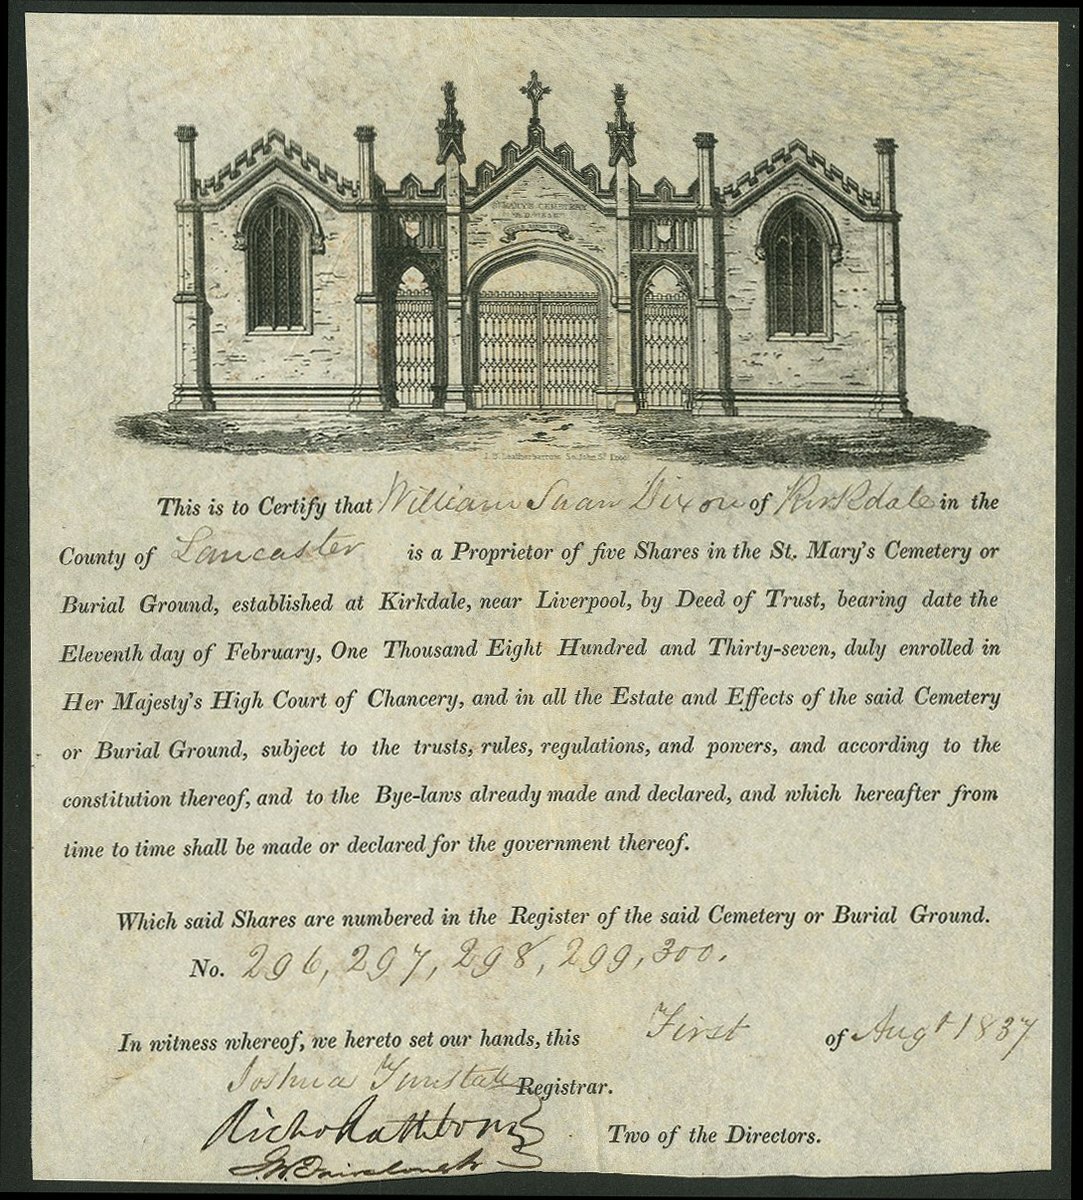 ST MARY'S CEMETERY
This is to Certify that William Shaw Dixon of Kirkdale in the
County of Lancaster is a Proprietor of five Shares in the St. Mary's Cemetery or
Burial Ground, established at Kirkdale, near Liverpool, by Deed of Trust, bearing date the
Eleventh day of February, One Thousand Eight Hundred and Thirty-seven, duly enrolled in
Her Majesty's High Court of Chancery, and in all the Estate and Effects of the said Cemetery
or Burial Ground, subject to the trusts, rules, regulations, and powers, and according to the
constitution thereof, and to the Bye-laws already made and declared, and which hereafter from
time to time shall be made or declared for the government thereof.
Which said Shares are numbered in the Register of the said Cemetery or Burial Ground.
No. 296, 297, 298, 299, 300.
In witness whereof, we hereto set our hands, this First of Augt 1837
Joshua Tunstall Registrar.
Richd Rathbone
Two of the Directors.